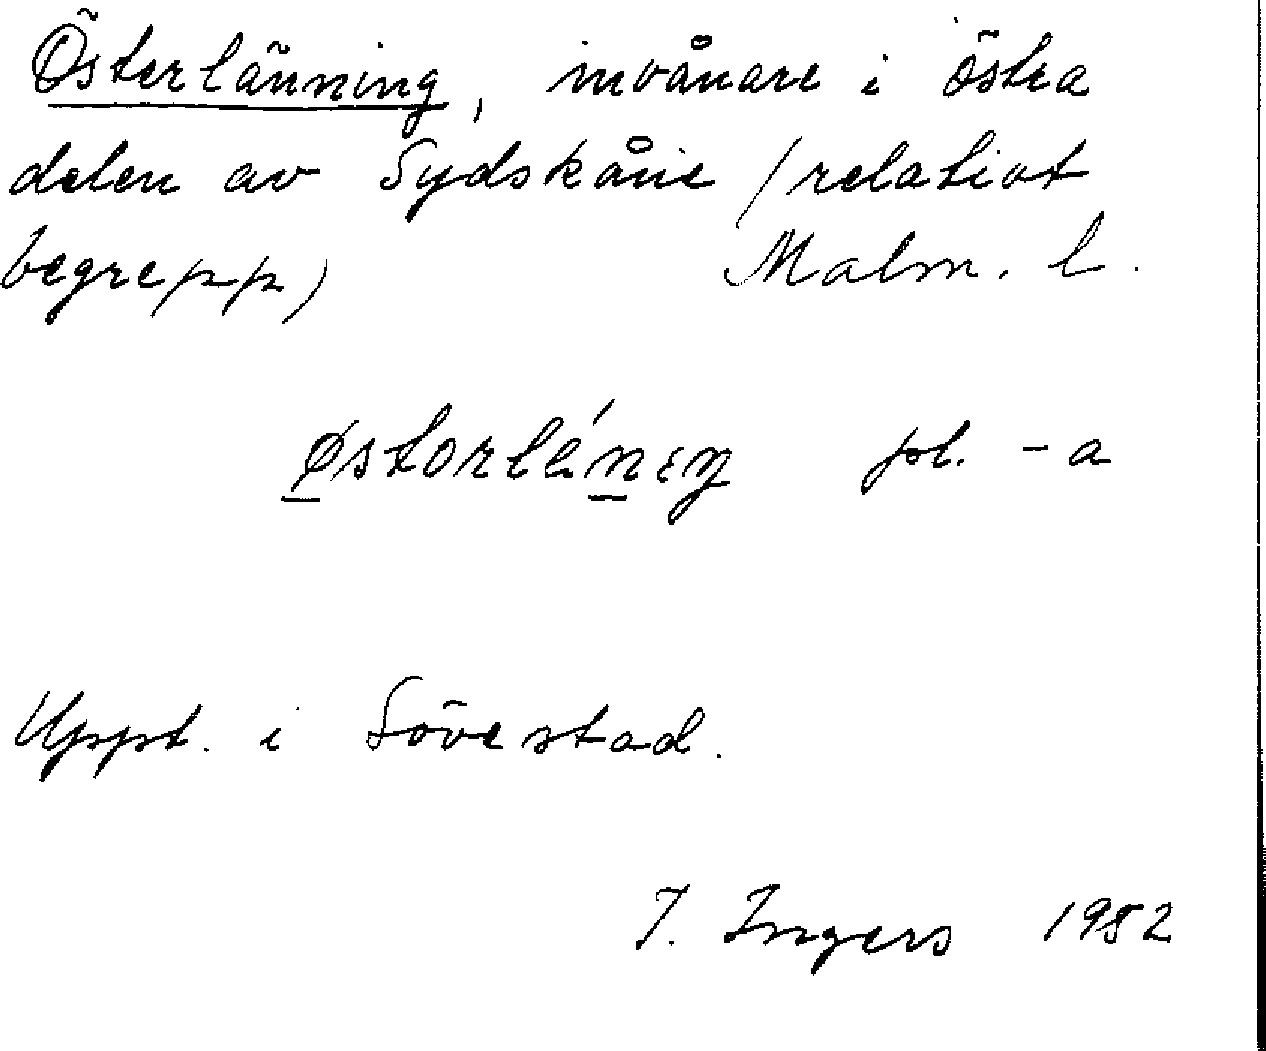 Österlänning, invånare i östra
delen av Sydskåne (relativt
begrepp) Malm. l.
østorlénıŋ pl. -a
Uppt. i Sövestad.
I. Ingers 1952